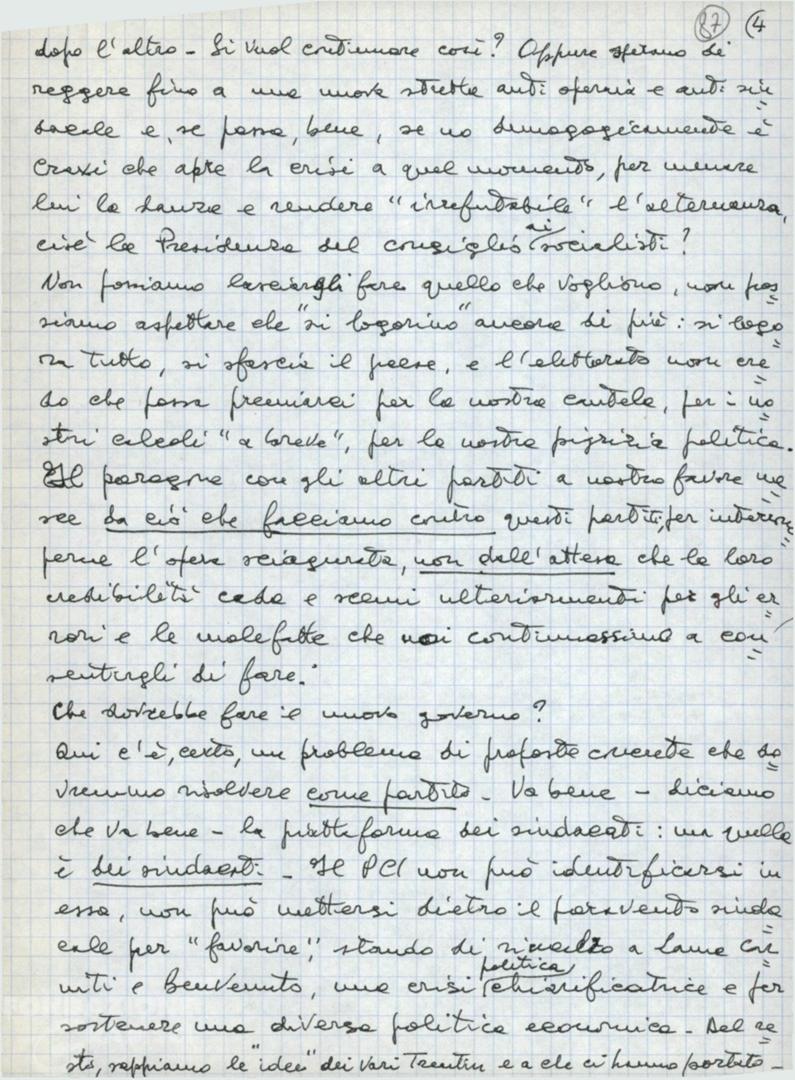 87 (4
dopo l'altro - Si vuol continuare così? Oppure sperano di
reggere fino a una nuova stretta anti operaia e anti sin=
dacale e, se passa, bene, se no demagogicamente è
Craxi che apre la crisi a quel momento, per menare
lui la danza e rendere "irrefutabile" l'alternanza,
cioè la Presidenza del consiglio ai socialisti?
Non possiamo lasciargli fare quello che vogliono, non pos=
siamo aspettare che "si logorino" ancora di più: si logo=
ra tutto, si sfascia il paese, e l'elettorato non cre=
do che possa premiarci per la nostra cautela, per i no=
stri calcoli "a breve", per la nostra pigrizia politica.
Il paragone con gli altri partiti a nostro favore na=
sce da ciò che facciamo contro questi partiti, per interrom=
perne l'opera sciagurata, non dall'attesa che la loro
credibilità cada e scemi ulteriormenti per gli er=
rori e le malefatte che noi continuassimo a con=
sentirgli di fare.
Che dovrebbe fare il nuovo governo?
Qui c'è, certo, un problema di proposte concrete che do=
vremmo risolvere come partito - Va bene - diciamo
che va bene - la piattaforma dei sindacati: ma quella
è dei sindacati - Il PCI non può identificarsi in
essa, non può mettersi dietro il paravento sinda=
cale per "favorire", stando di rincalzo a Lama Car=
niti e Benvenuto, una crisi politica chiarificatrice e per
sostenere una diversa politica economica - Del re=
sto, sappiamo le "idee" dei vari Trentin e a che ci hanno portato -